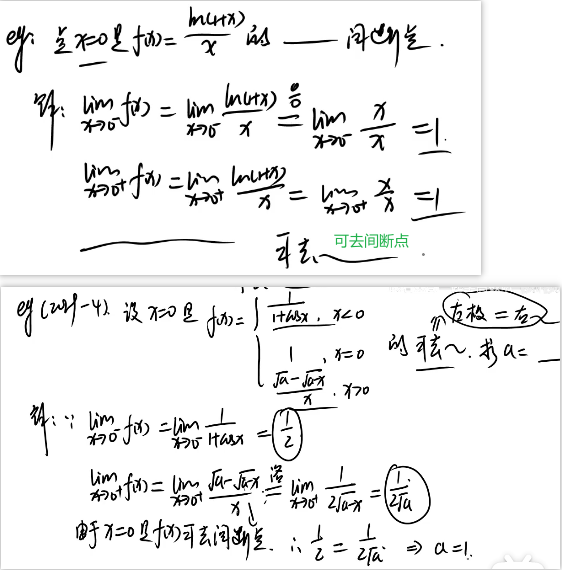 eg: 点x=0是f(x)= ln(1+x)/x 的 ___ 间断点.
解: lim x→0⁻ f(x) = lim x→0⁻ ln(1+x)/x 0/0 = lim x→0⁻ x/x = 1.
lim x→0⁺ f(x) = lim x→0⁺ ln(1+x)/x = lim x→0⁺ x/x = 1
可去 可去间断点
左极=右~
eg 设 x=0是 f(x)= { 1/(1+cosx), x<0
1, x=0 的可去~. 求a= __
(√a-√(a-x))/x, x>0
解: ∵ lim x→0⁻ f(x) = lim x→0⁻ 1/(1+cosx) = 1/2
lim x→0⁺ f(x) = lim x→0⁺ (√a-√(a-x))/x 洛= lim x→0⁺ 1/(2√(a-x)) = 1/(2√a)
由于x=0是f(x)可去间断点. ∴ 1/2 = 1/(2√a) ⇒ a=1.